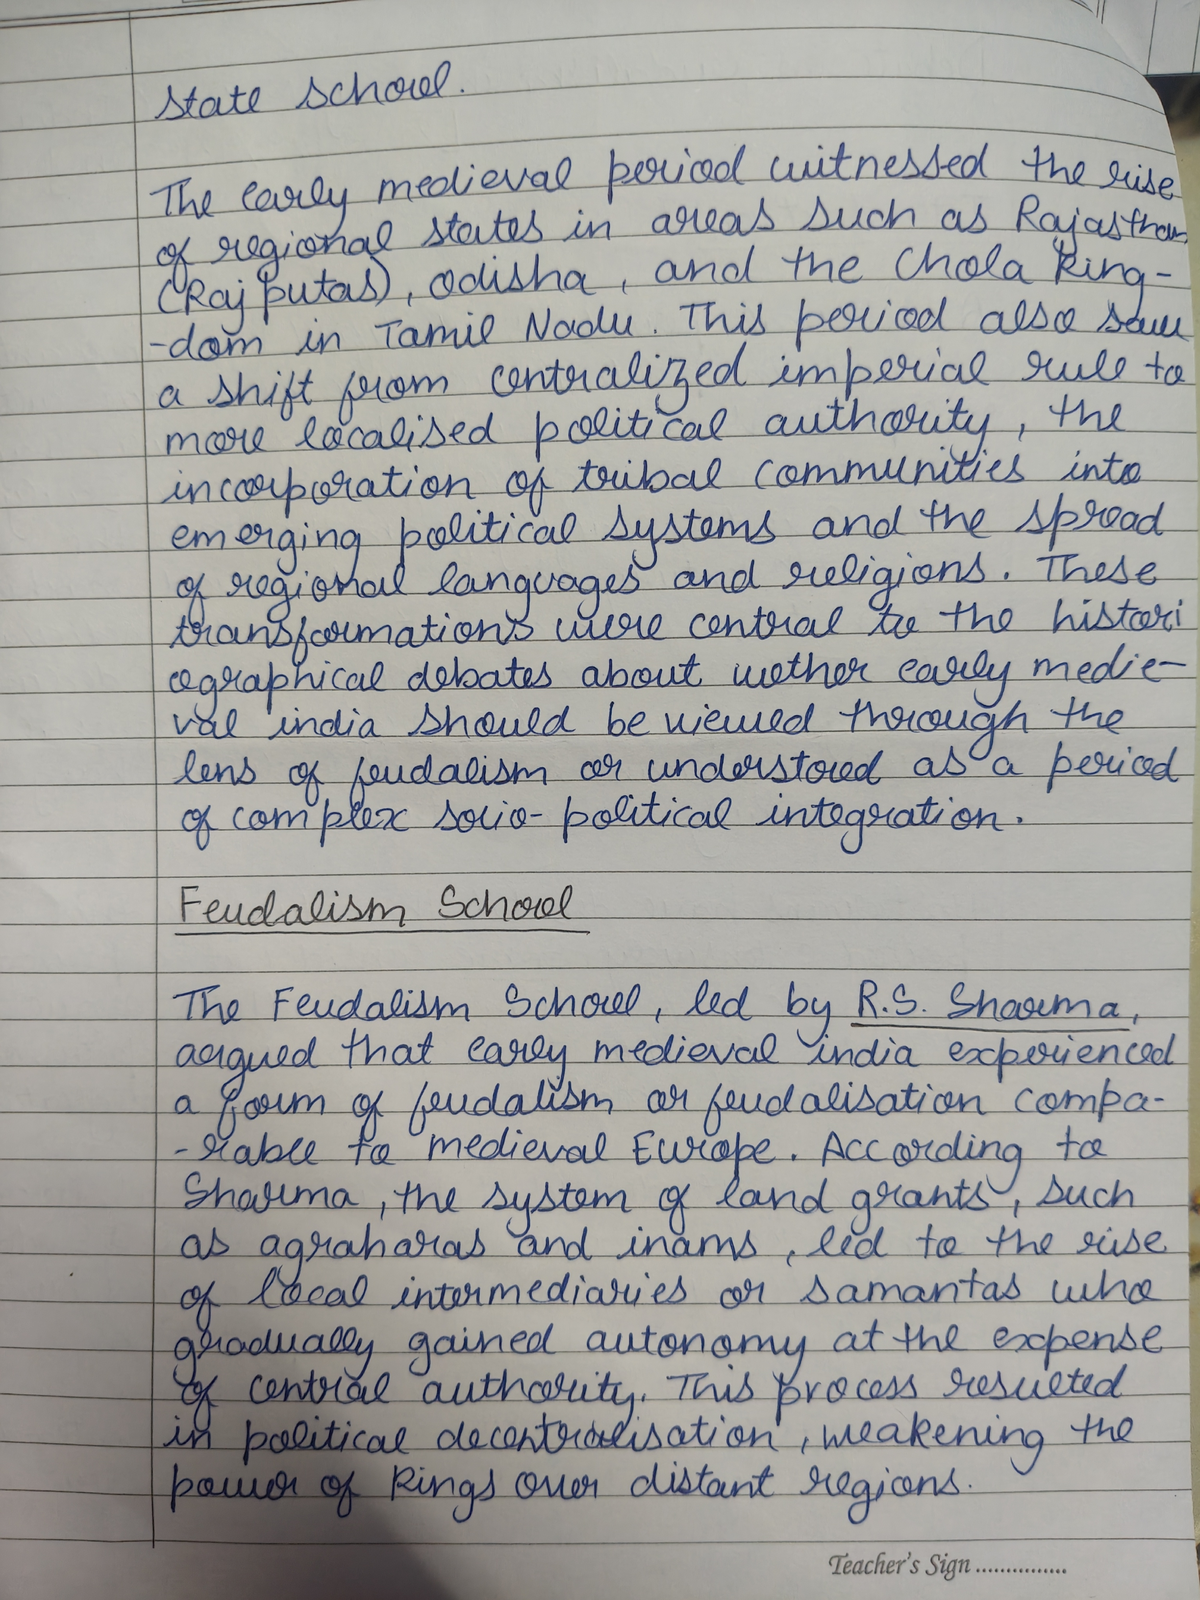 state school.
The early medieval period witnessed the rise
of regional states in areas such as Rajasthan
(Rajputas), odisha, and the Chola King-
-dom in Tamil Nadu. This period also saw
a shift from centralized imperial rule to
more localised political authority, the
incorporation of tribal communities into
emerging political systems and the spread
of regional languages and religions. These
transformations were central to the histori
ographical debates about wether early medie-
val india should be viewed through the
lens of feudalism or understood as a period
of complex socio-political integration.
Feudalism School
The Feudalism School, led by R.S. Sharma,
argued that early medieval india experienced
a form of feudalism or feudalisation compa-
-rable to medieval Europe. According to
Sharma, the system of land grants, such
as agraharas and inams, led to the rise
of local intermediaries or samantas who
gradually gained autonomy at the expense
of central authority. This process resulted
in political decentralisation, weakening the
power of Kings over distant regions.
Teacher's Sign ...............